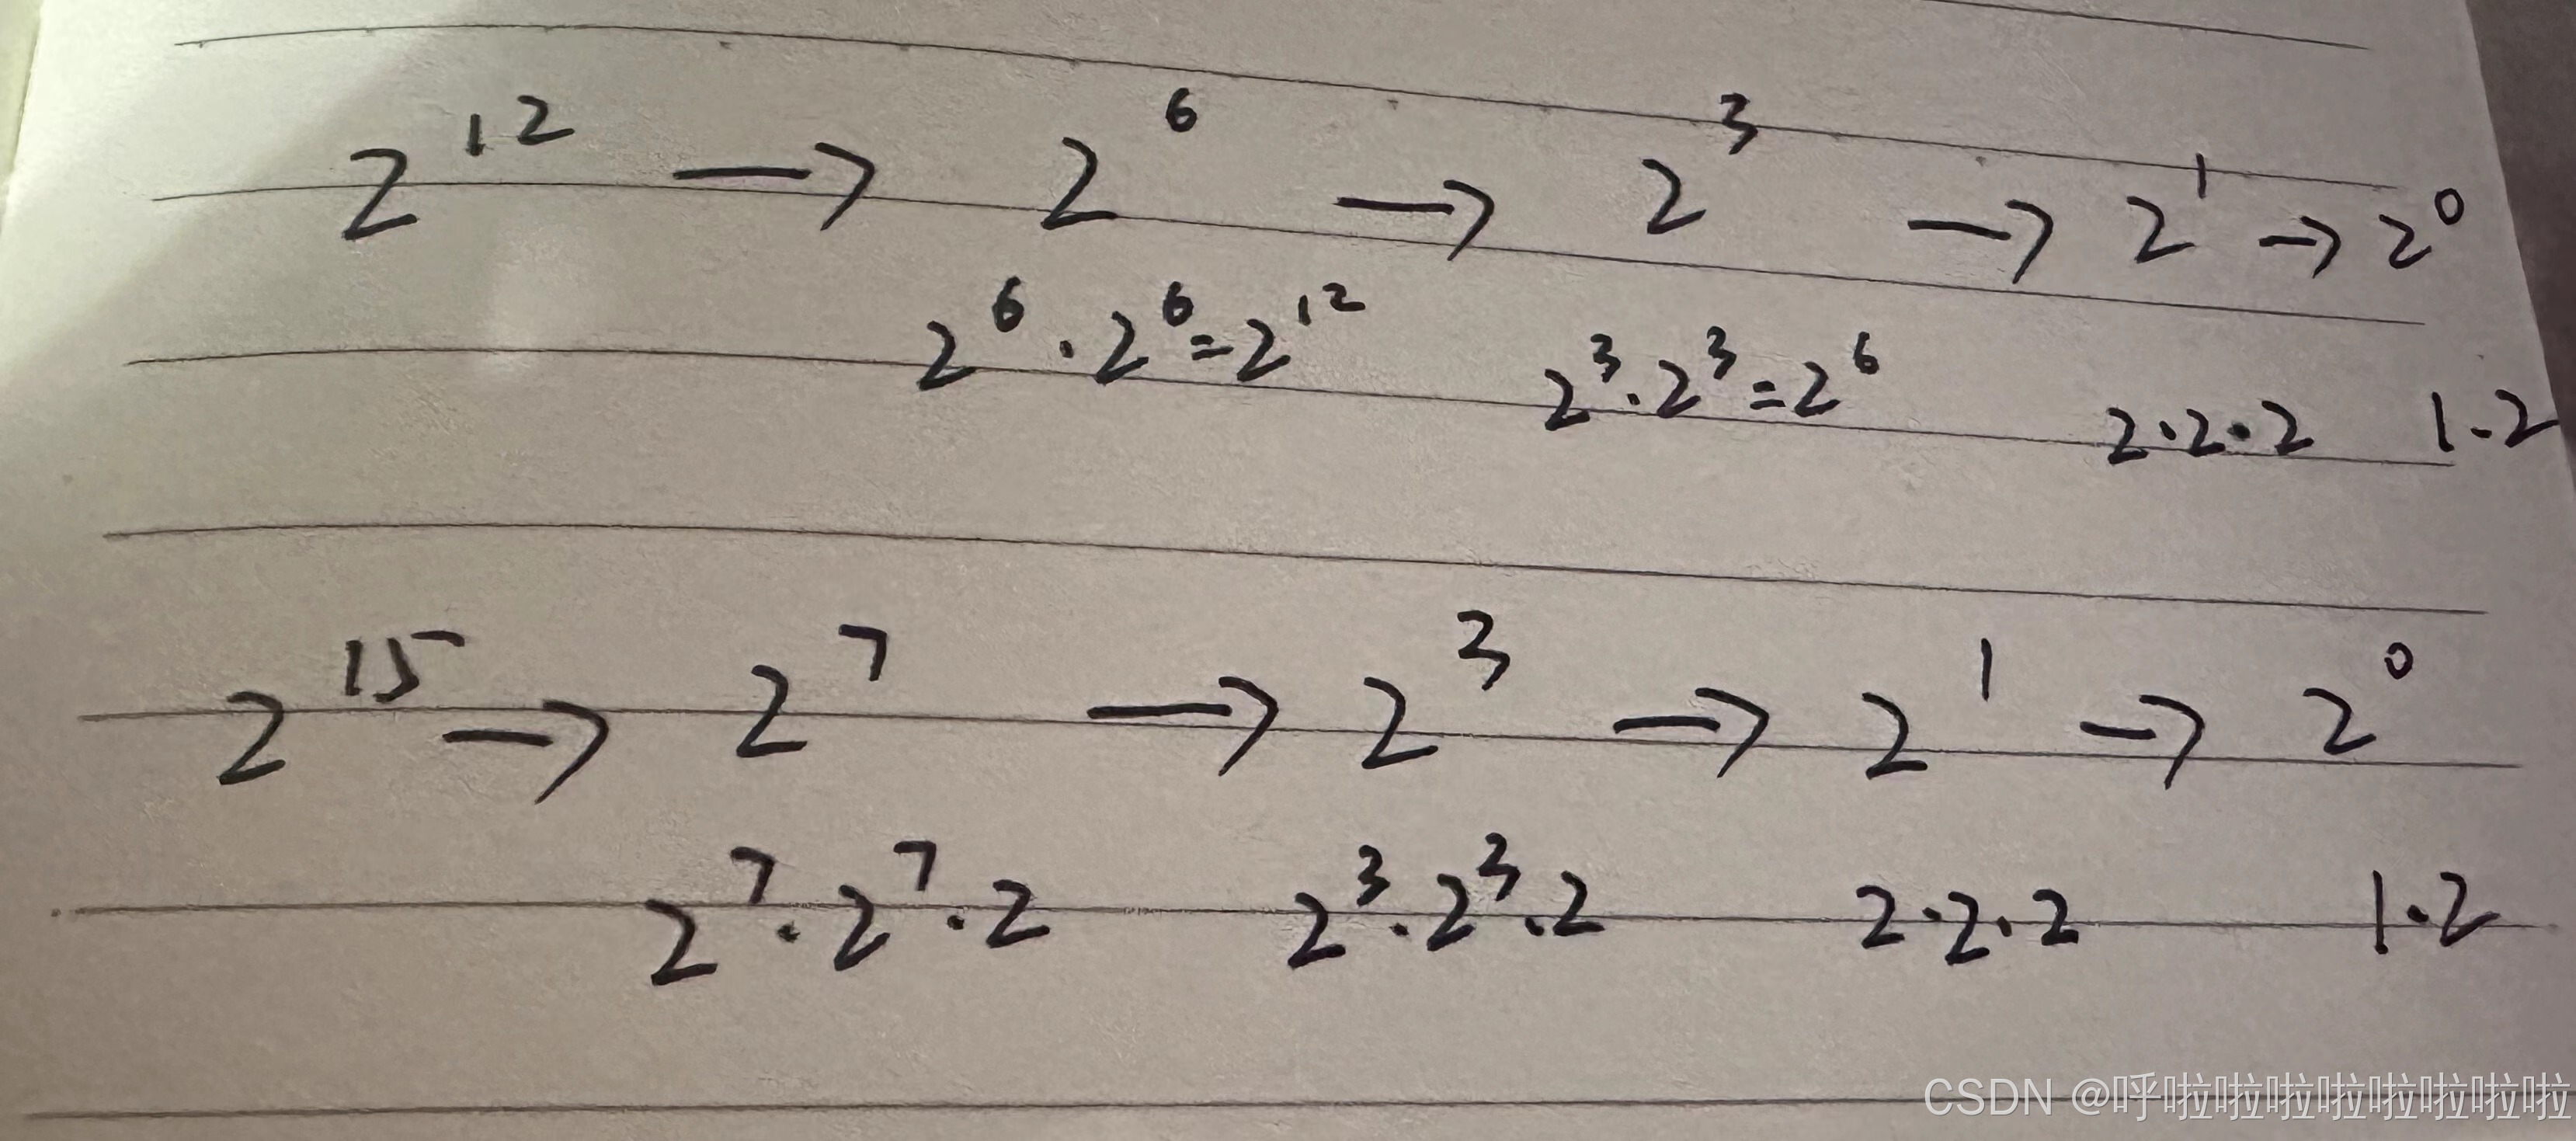 2¹² → 2⁶ → 2³ → 2¹ → 2⁰
2⁶ · 2⁶ = 2¹² 2³ · 2³ = 2⁶ 2 · 2 · 2 1 · 2
2¹⁵ → 2⁷ → 2³ → 2¹ → 2⁰
2⁷ · 2⁷ · 2 2³ · 2³ · 2 2 · 2 · 2 1 · 2
CSDN @呼啦啦啦啦啦啦啦啦